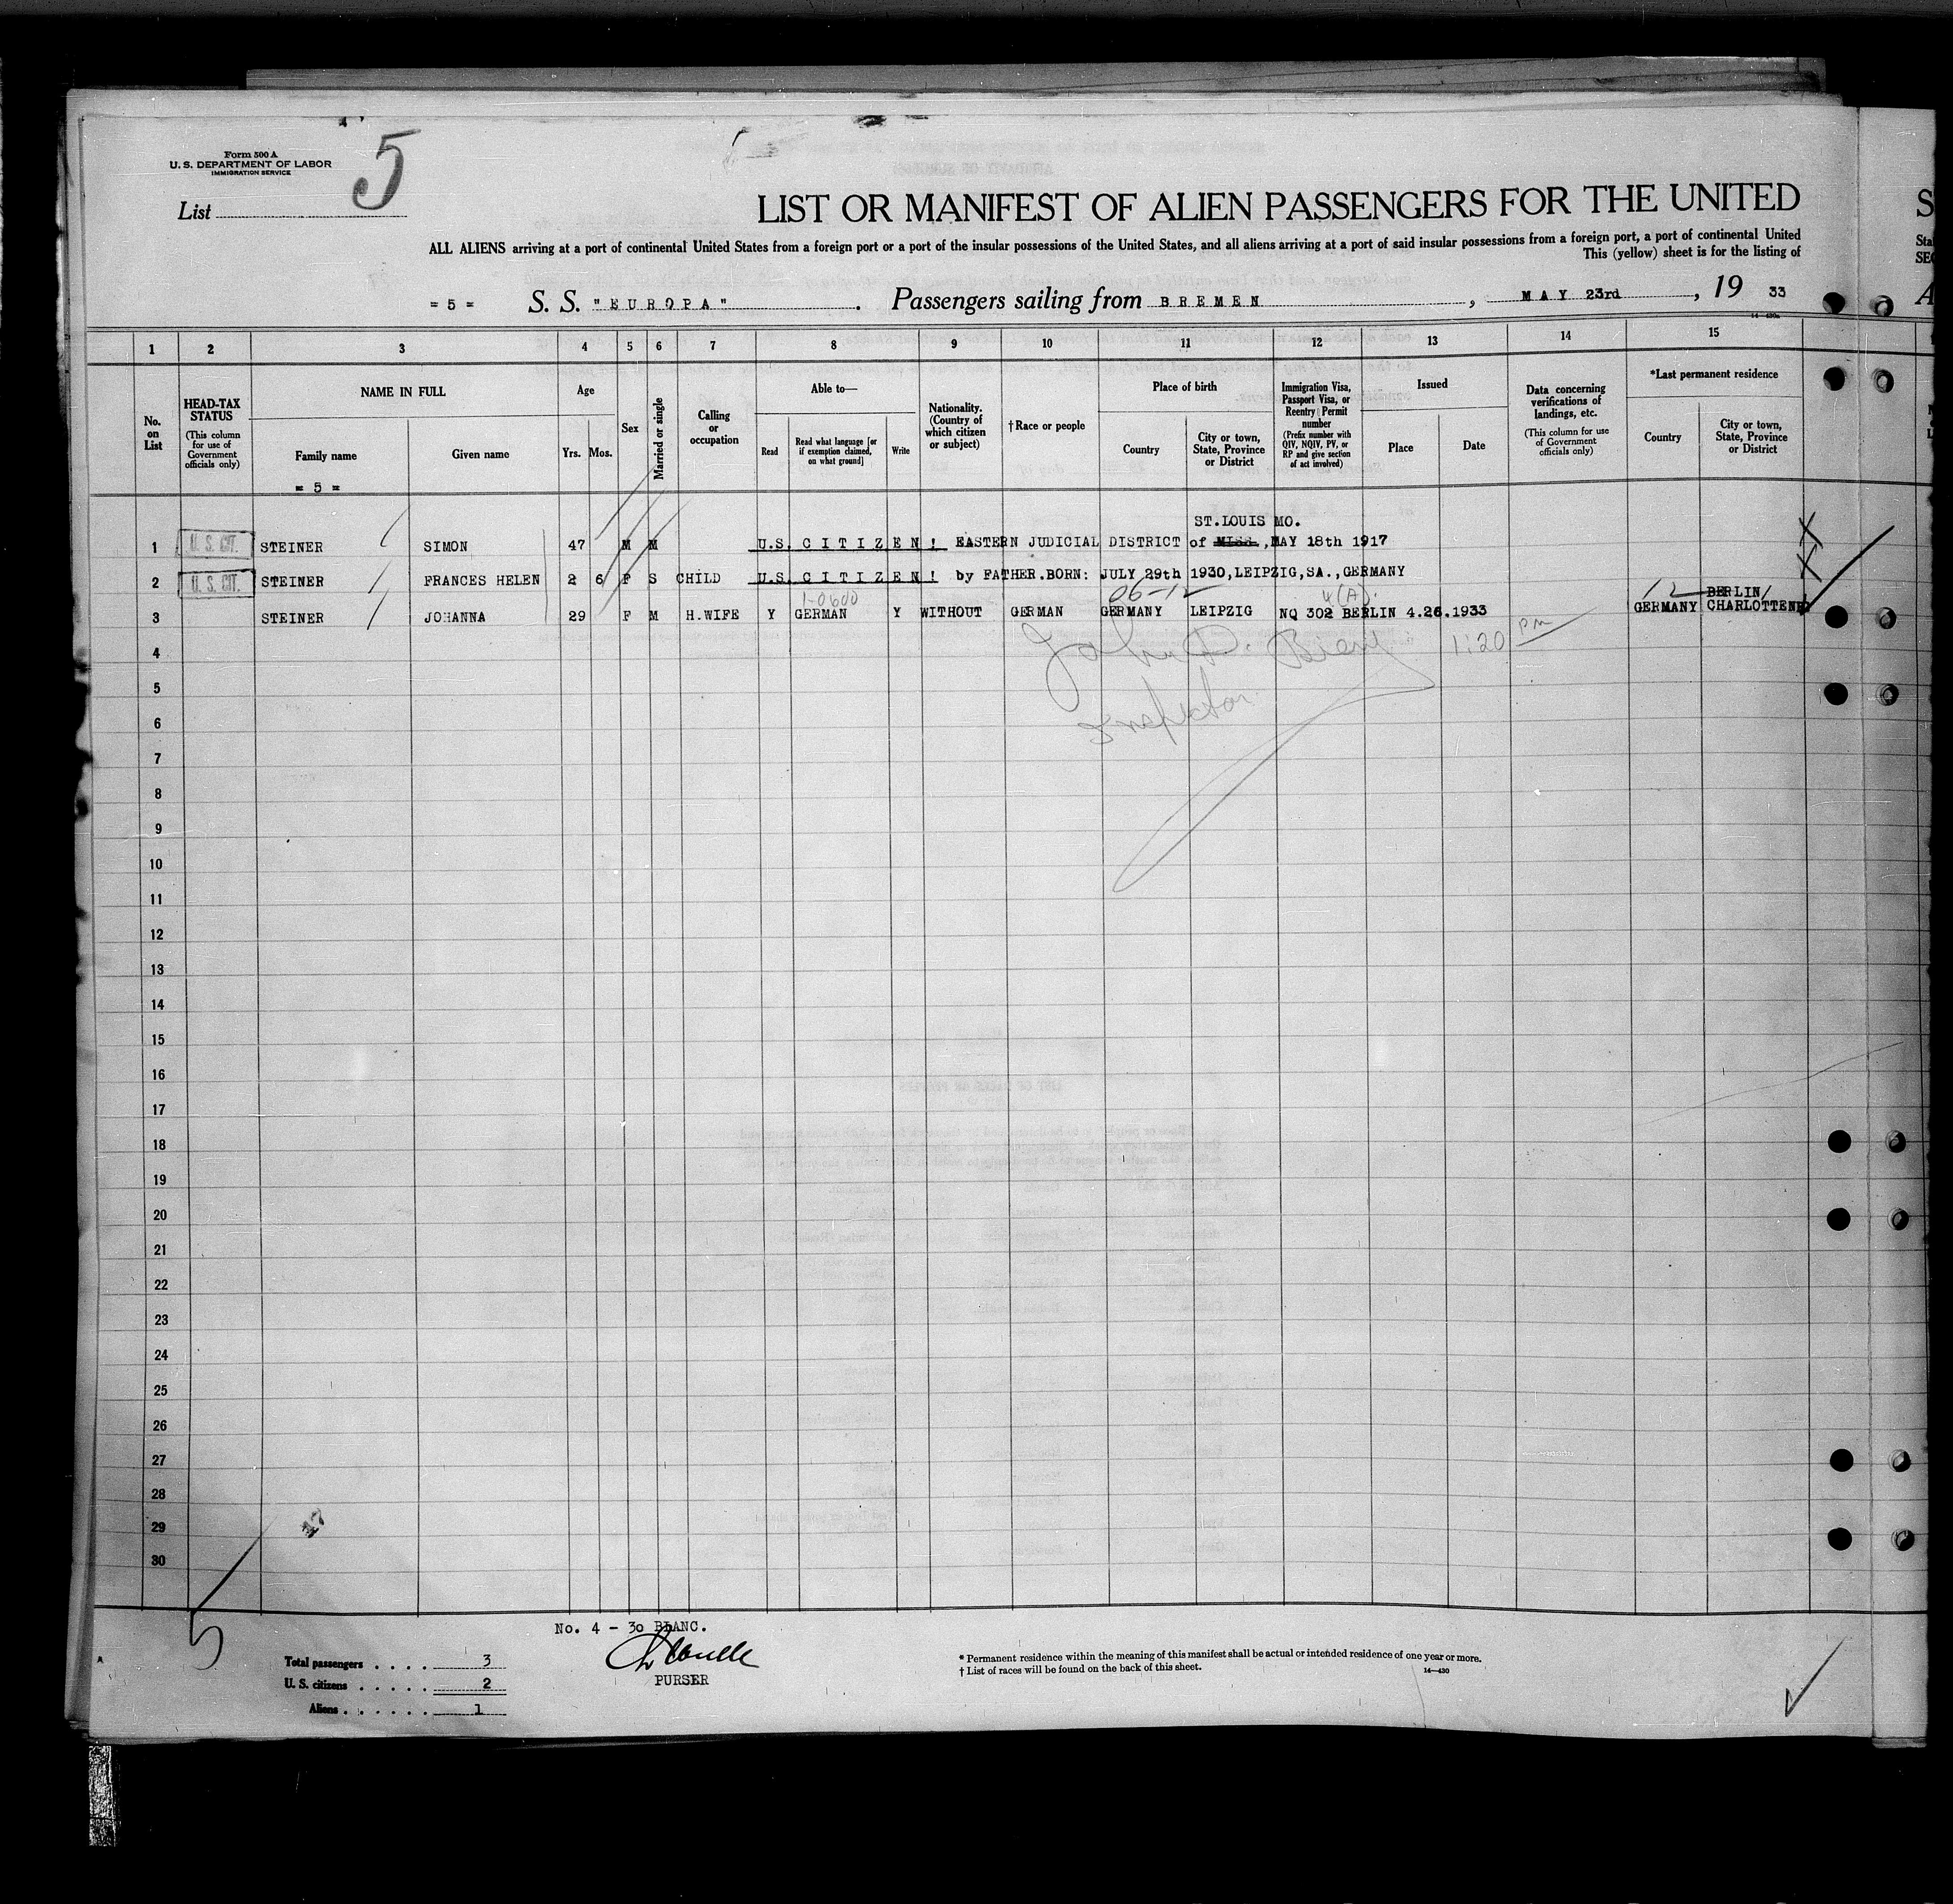 Form 500 A
U. S. DEPARTMENT OF LABOR
IMMIGRATION SERVICE
5
List
LIST OR MANIFEST OF ALIEN PASSENGERS FOR THE UNITED
S
ALL ALIENS arriving at a port of continental United States from a foreign port or a port of the insular possessions of the United States, and all aliens arriving at a port of said insular possessions from a foreign port, a port of continental United
This (yellow) sheet is for the listing of
= 5 = S. S. "EUROPA". Passengers sailing from BREMEN, MAY 23rd, 19 33
1 2 3 4 5 6 7 8 9 10 11 12 13 14 15
No. on List
HEAD-TAX STATUS (This column for use of Government officials only)
NAME IN FULL
Family name
Given name
Age
Yrs. Mos.
Sex
Married or single
Calling or occupation
Able to—
Read
Read what language [or if exemption claimed, on what ground]
Write
Nationality. (Country of which citizen or subject)
†Race or people
Place of birth
Country
City or town, State, Province or District
Immigration Visa, Passport Visa, or Reentry Permit number (Prefix number with QIV, NQIV, PV, or RP and give section of act involved)
Issued
Place
Date
Data concerning verifications of landings, etc. (This column for use of Government officials only)
*Last permanent residence
Country
City or town, State, Province or District
= 5 =
ST.LOUIS MO.
1 U. S. CIT. STEINER SIMON 47 M M U.S. CITIZEN! EASTERN JUDICIAL DISTRICT of Miss., MAY 18th 1917
2 U. S. CIT. STEINER FRANCES HELEN 2 6 F S CHILD U.S. CITIZEN! by FATHER.BORN: JULY 29th 1930,LEIPZIG,SA.,GERMANY
1-0600 06-12 4(A). 12 BERLIN
3 STEINER JOHANNA 29 F M H.WIFE Y GERMAN Y WITHOUT GERMAN GERMANY LEIPZIG NQ 302 BERLIN 4.26.1933 GERMANY CHARLOTTENB
4 John 1:20 pm
5
Inspector
6
7
8
9
10
11
12
13
14
15
16
17
18
19
20
21
22
23
24
25
26
27
28
29
30
5
No. 4 - 30 BLANC.
PURSER
Total passengers . . . . 3
U. S. citizens . . . . . 2
Aliens . . . . . . 1
* Permanent residence within the meaning of this manifest shall be actual or intended residence of one year or more.
† List of races will be found on the back of this sheet.
14—430